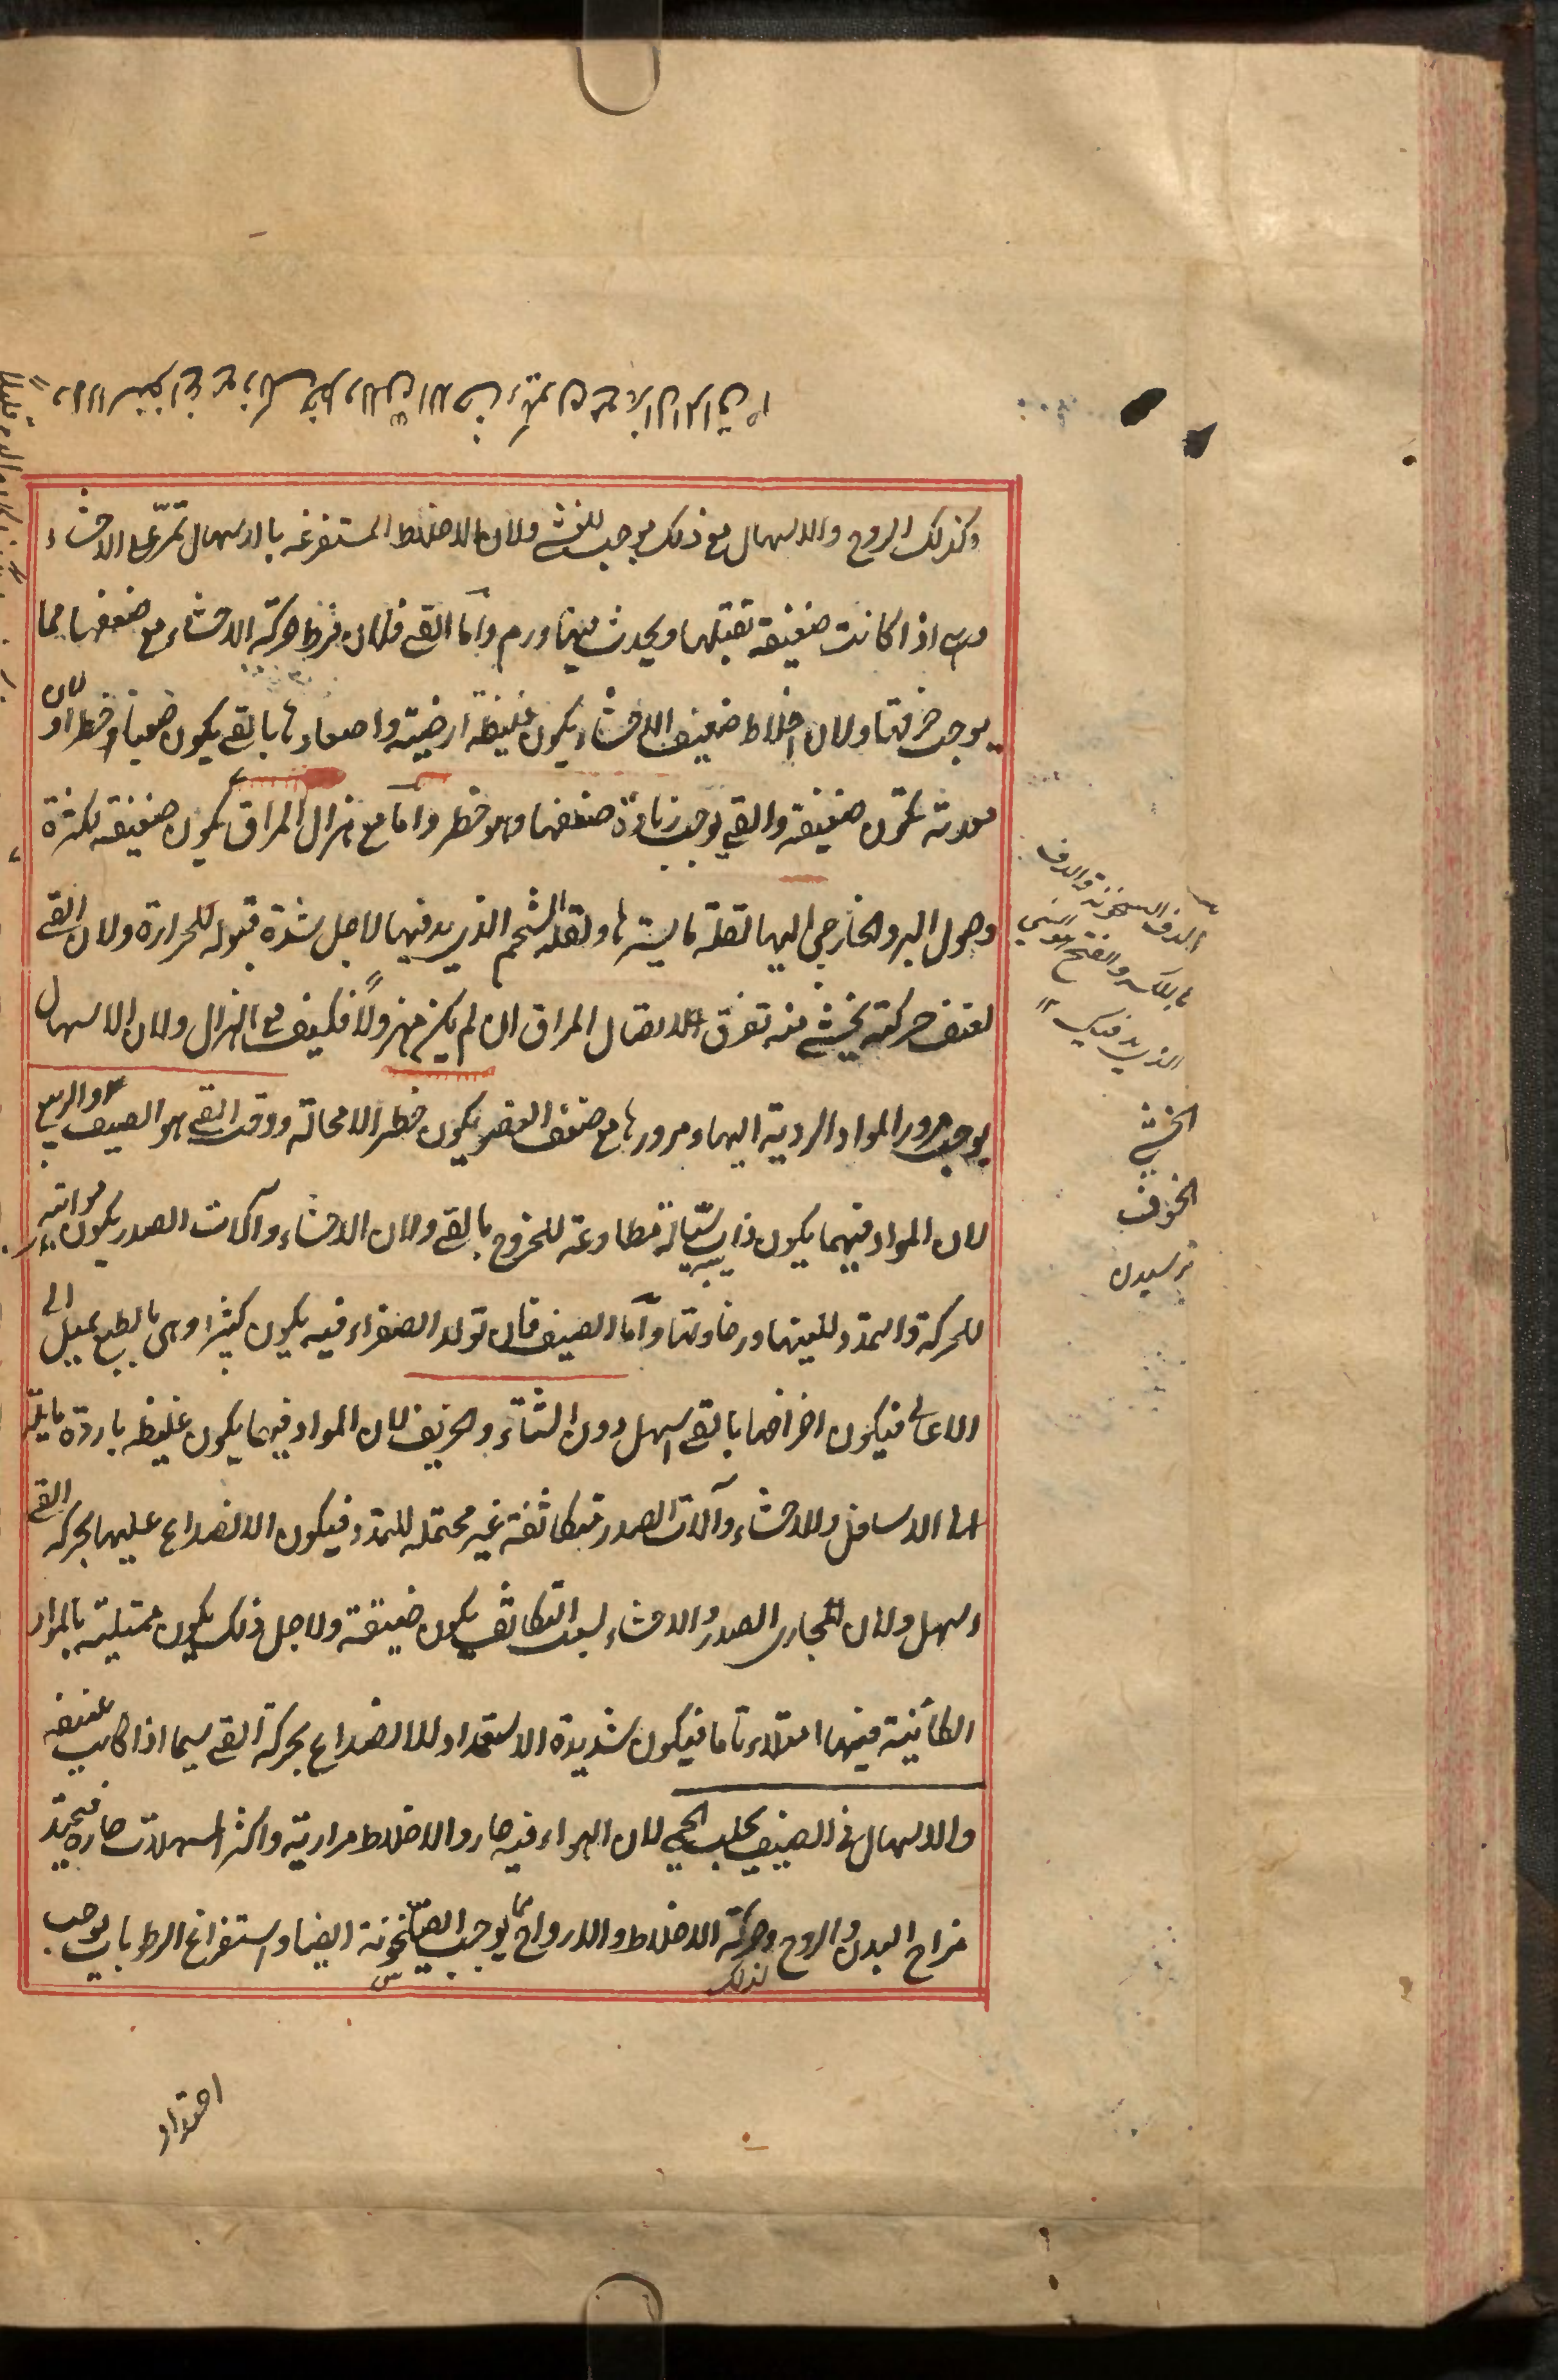 وكذلك الروح والاسهال مع ذلك يوجب للغشى ولان الاخلاط المستفرغة بالاسهال تمرّ على الاحشاء
وهى اذا كانت ضعيفة تقبلها ويحدث فيها ورم وامّا القى فلان فرط حركة الاحشاء مع ضعفها مما
يوجب خرقها ولان اخلاط ضعيف الاحشاء يكون غليظة ارضية واصعادها بالقى يكون صعبا وخطرا ولان
معدته تكون ضعيفة والقى يوجب زيادة ضعفها وهو خطر وامّا مع هزال المراق يكون ضعيفة لكثرة
وصول البرد الخارجى اليها لقلة ما يسترها ولقلة الشحم الذى يدفيها لاجل شدة قبوله للحرارة ولان القى
لعنف حركته يخشى منه تفرق اتصال المراق ان لم يكن مهزولاً فكيف مع الهزال ولان الاسهال
يوجب مرور المواد الردية اليها ومرورها مع ضعف العضو يكون خطرا لا محالة ووقت القى هو الصيف والربيع
لان المواد فيهما يكون ذايبة سيّالة مطاوعة للخروج بالقى ولان الاحشاء وآلات الصدر يكون مواتية
للحركة والتمدد للينها ورخاوتها وامّا الصيف فلان تولد الصفراء فيه يكون كثيرا وهى بالطبع يميل الى
الاعالى فيكون اخراجها بالقى اسهل دون الشتاء والخريف لان المواد فيهما يكون غليظة باردة مايلة
الى الاسافل والاحشاء وآلات الصدر متكاثفة غير محتملة للتمدد فيكون الانصداع عليها بحركة القى
اسهل ولان مجارى الصدر والاحشاء لسبب التكاثف يكون ضيقة ولاجل ذلك يكون ممتلية بالمواد
الكائنة فيها امتلاء تاما فيكون شديدة الاستعداد للانصداع بحركة القى سيما اذا كانت عنيفة
والاسهال فى الصيف يجلب الحمى لان الهواء فيه حار والاخلاط مرارية واكثر المسهلات حارة فيحتد
مزاج البدن والروح وحركة الاخلاط والارواح مما يوجب السخونة ايضا واستفراغ الرطوبات يوجب
لذلك
الدفء السخونة والدفى
بالكسر والفتح
الذى يدفيك
الخشى
الخوف
ترسيدن
احتداد